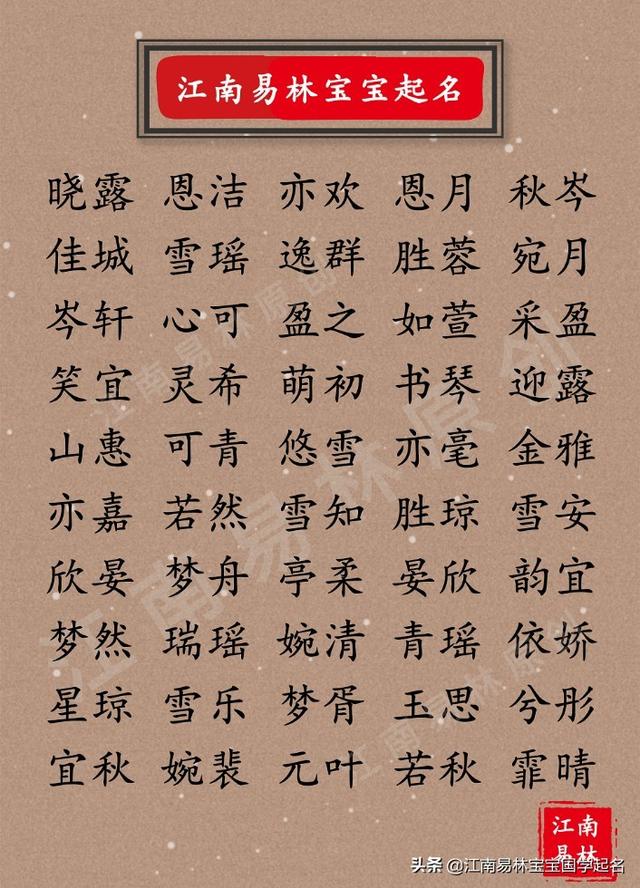 江南易林宝宝起名
晓露 恩洁 亦欢 恩月 秋岑
佳城 雪瑶 逸群 胜蓉 宛月
岑轩 心可 盈之 如萱 采盈
笑宜 灵希 萌初 书琴 迎露
山惠 可青 悠雪 亦毫 金雅
亦嘉 若然 雪知 胜琼 雪安
欣晏 梦舟 亭柔 晏欣 韵宜
梦然 瑞瑶 婉清 青瑶 依娇
星琼 雪乐 梦胥 玉思 兮彤
宜秋 婉裴 元叶 若秋 霏晴
江南易林原创
江南易林原创
江南易林原创
江南
易林
头条 @江南易林宝宝国学起名